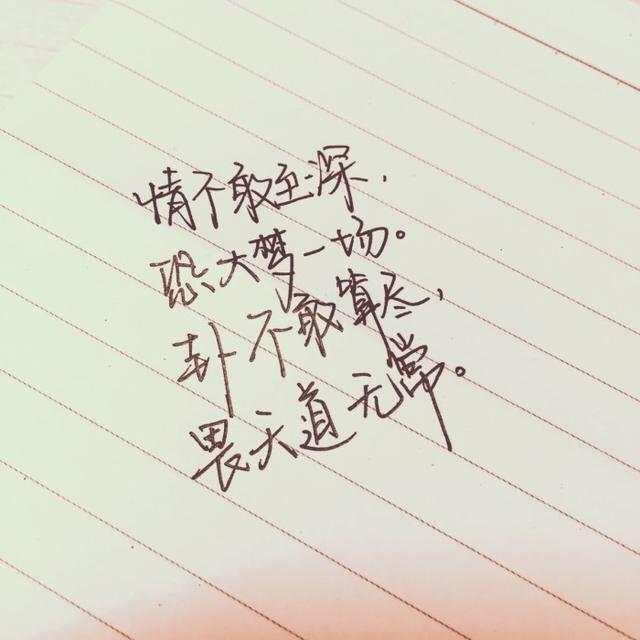 情不敢至深，
恐大梦一场。
卦不敢算尽，
畏天道无常。